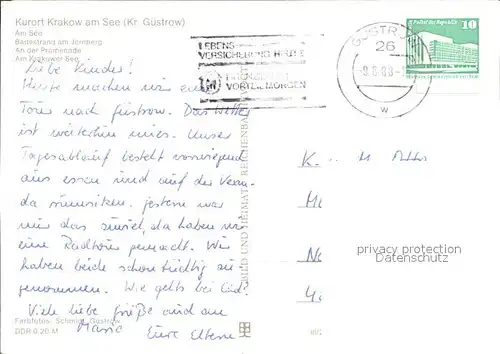 Kurort Krakow am See (Kr. Güstrow)
Am See
Badestrand am Jörnberg
An der Promenade
Am Krakower See
LEBENS-
VERSICHERUNG HEUTE
VORTEIL MORGEN
GÜSTROW
26
-9.8.88-
w
Palast der Republik
10
Liebe Kinder!
Heute machen wir eine
Tour nach Güstrow. Das Wetter
ist weiterhin mies. Unser
Tagesablauf besteht vorwiegend
aus essen und auf der Veran-
da musizieren. Gestern war
mir das zuviel, da haben wir
eine Radtour gemacht. Wir
haben beide schon tüchtig zu-
genommen. Wie gehts bei Euch?
Viele liebe Grüße und an
Maria Eure Eltern
BILD UND HEIMAT REICHENBACH
privacy protection
Datenschutz
Farbfotos: Schmidt, Güstrow
DDR 0,20 M